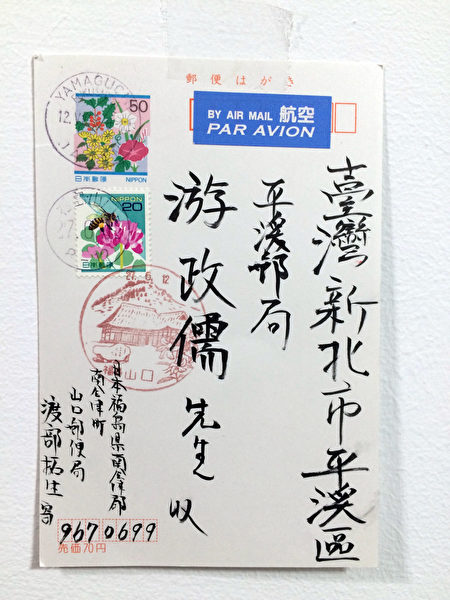 郵便はがき
BY AIR MAIL 航空
PAR AVION
50
日本郵便 NIPPON
NIPPON
20
日本郵便
27.6.12
福島 山口
臺灣新北市平溪區
平溪郵局
游政儒先生收
日本福島県南会津郡
南会津町
山口郵便局
渡部 寄
9670699
売価70円